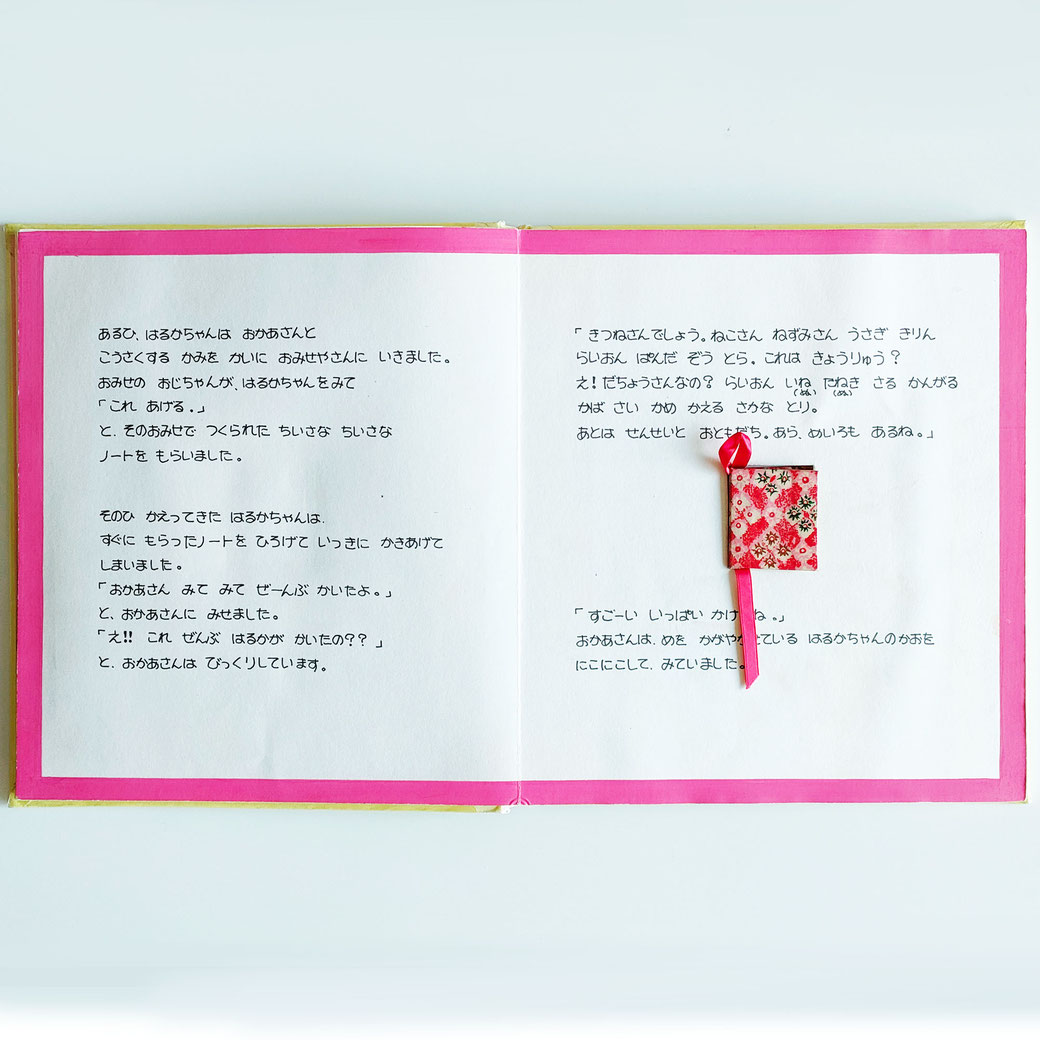 あるひ、はるかちゃんは おかあさんと
こうさくする かみを かいに おみせやさんに いきました。
おみせの おじちゃんが、はるかちゃんをみて
「これ あげる。」
と、そのおみせで つくられた ちいさな ちいさな
ノートを もらいました。
そのひ かえってきた はるかちゃんは、
すぐに もらったノートを ひろげて いっきに かきあげて
しまいました。
「おかあさん みて みて ぜーんぶ かいたよ。」
と、おかあさんに みせました。
「え!! これ ぜんぶ はるかが かいたの??」
と、おかあさんは びっくりしています。
「きつねさんでしょう。ねこさん ねずみさん うさぎ きりん
らいおん ぱんだ ぞう とら。これは きょうりゅう?
え!だちょうさんなの? らいおん いね たねき さる かんがる
(ぬ) (ぬ)
かば さい かめ かえる さかな とり。
あとは せんせいと おともだち。あら、めいろも あるね。」
「すごーい いっぱい かけ ね。」
おかあさんは、めを かがやかせている はるかちゃんのかおを
にこにこして、みていました。